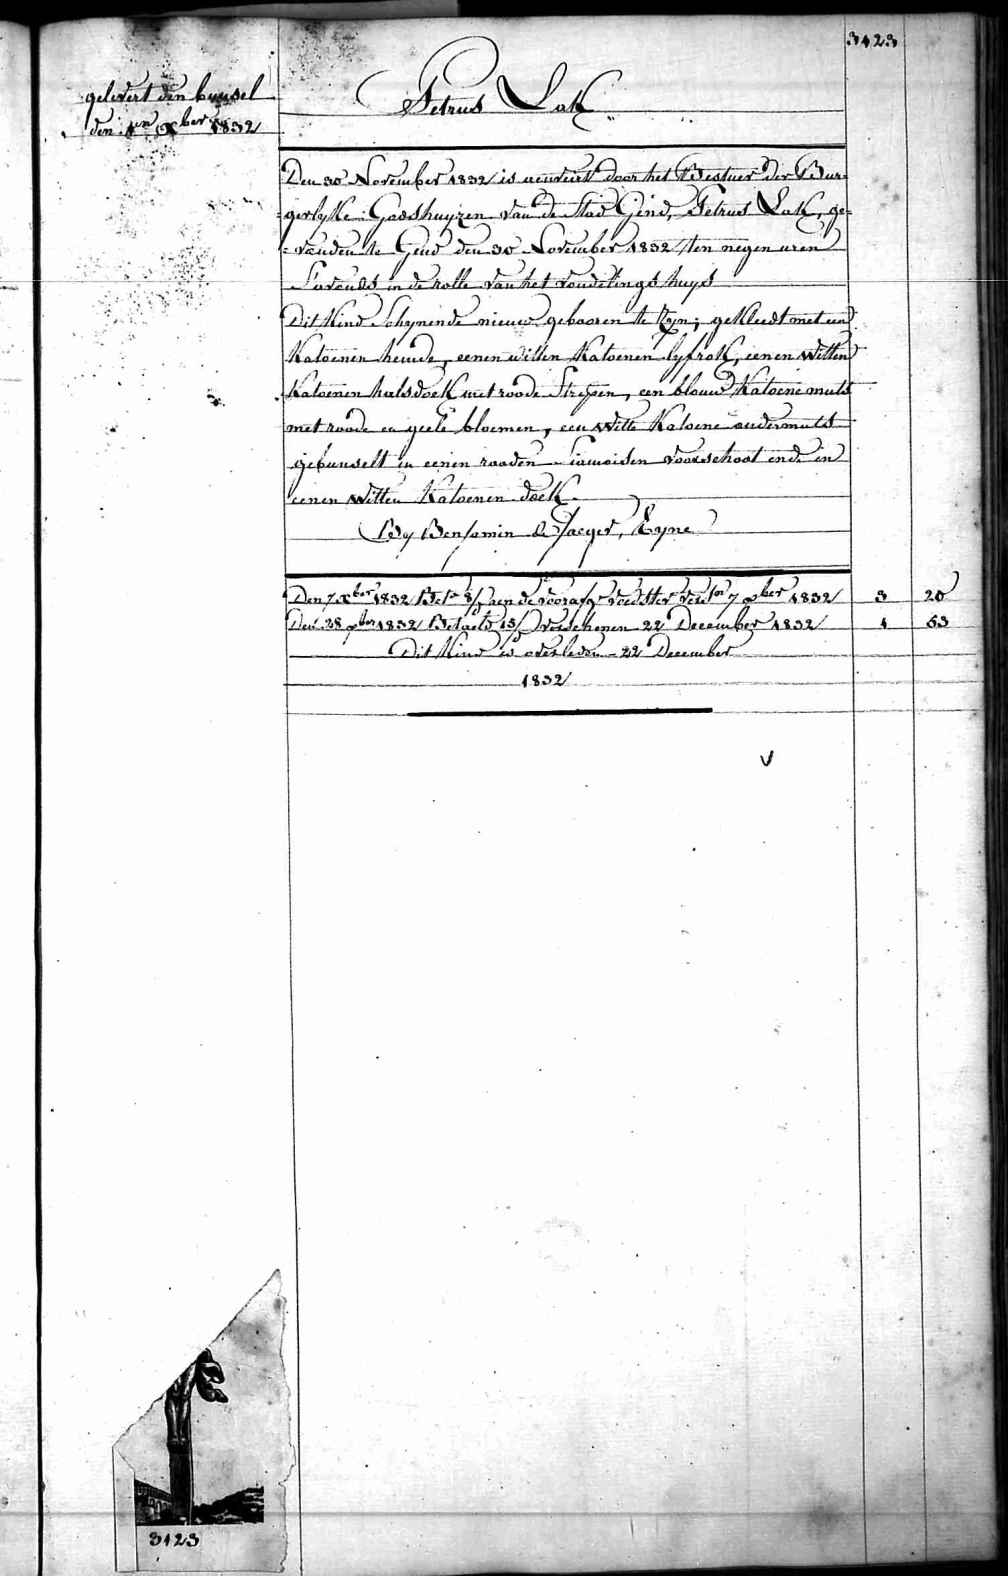 3123
gelevert den bunsel
den 1en Xber 1832
Petrus Lak
Den 30 November 1832 is aenveird door het Bestuer der Bur=
=gerlyke Godshuyzen van de Stad Gend, Petrus Lak, ge=
=vonden te Gend den 30 November 1832 ten negen uren
S'avonds in de rolle van het vondelings huys
Dit Kind Schynende nieuw gebooren te Zyn; gekleedt met een
Katoenen hemde, eenen witten Katoenen lyfrok, eenen witten
Katoenen halsdoek met roode Strepen, een blauw Katoene muts
met roode en geele bloemen, een witte Katoene ondermuts
gebunselt in eenen rooden Siamoisen voorschoot ende in
eenen witten Katoenen doek.
By Benjamin De Jaeger, Eyne
Den 7 Xber 1832 Bet. 8/ aen de voorafg. voedster 7 Xber 1832 3 20
Den 28 Xber 1832 Betaeld 15/ verschenen 22 December 1832 1 53
Dit Kind is overleden 22 December
1832
3123